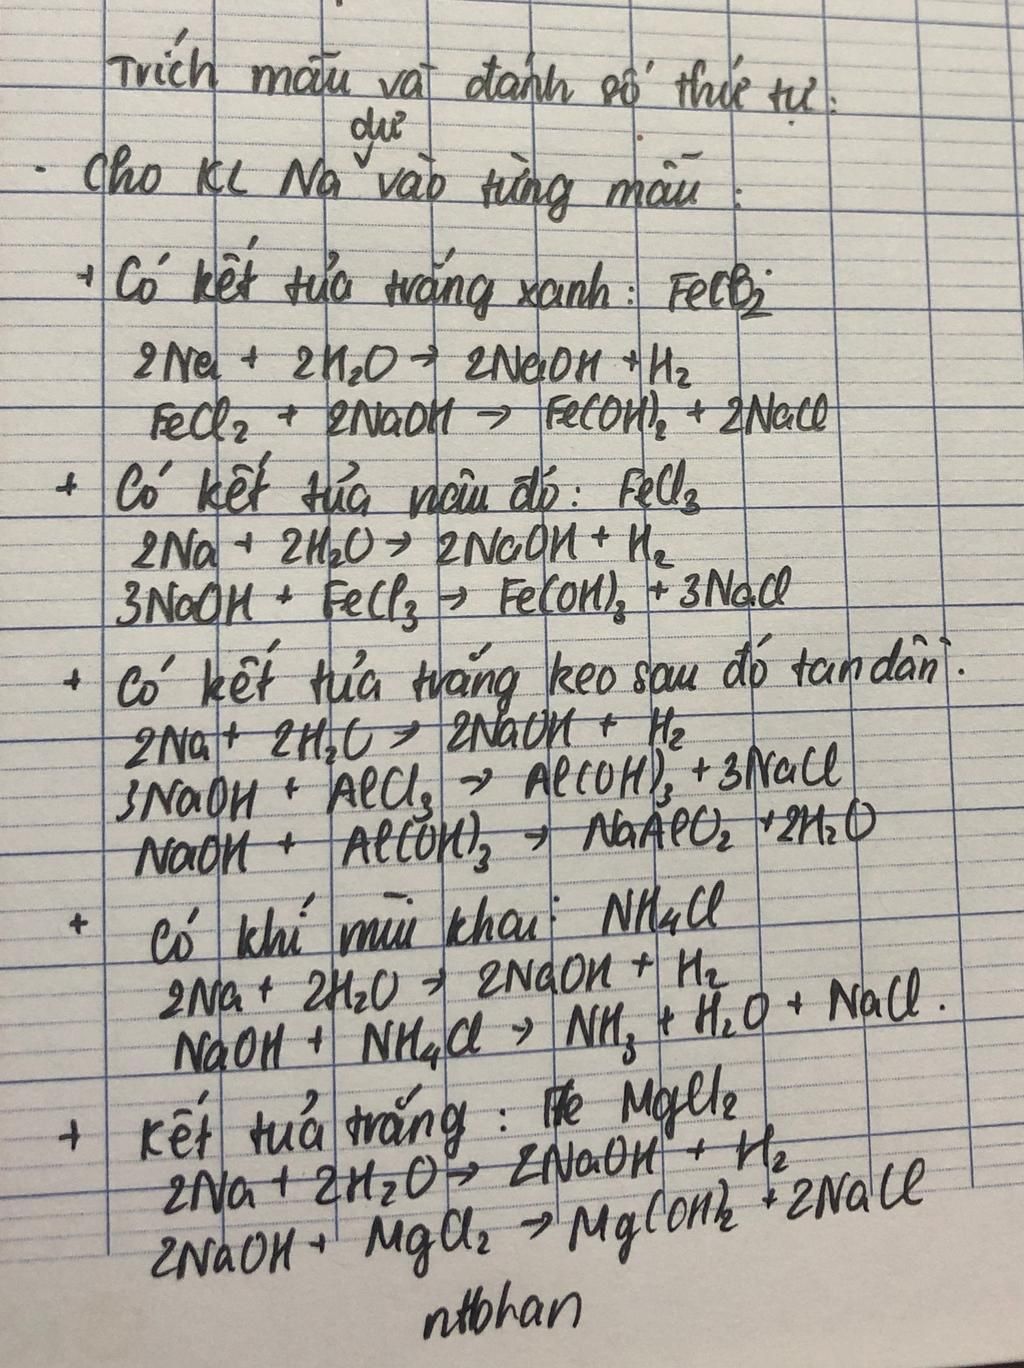 Trích mẫu và đánh số thứ tự:
dư
. Cho KL Na vào từng mẫu:
+ Có kết tủa trắng xanh: FeCl2
2Na + 2H2O → 2NaOH + H2
FeCl2 + 2NaOH → Fe(OH)2 + 2NaCl
+ Có kết tủa nâu đỏ: FeCl3
2Na + 2H2O → 2NaOH + H2
3NaOH + FeCl3 → Fe(OH)3 + 3NaCl
+ Có kết tủa trắng keo sau đó tan dần.
2Na + 2H2O → 2NaOH + H2
3NaOH + AlCl3 → Al(OH)3 + 3NaCl
NaOH + Al(OH)3 → NaAlO2 + 2H2O
+ Có khí mùi khai: NH4Cl
2Na + 2H2O → 2NaOH + H2
NaOH + NH4Cl → NH3 + H2O + NaCl.
+ Kết tủa trắng: MgCl2
2Na + 2H2O → 2NaOH + H2
2NaOH + MgCl2 → Mg(OH)2 + 2NaCl